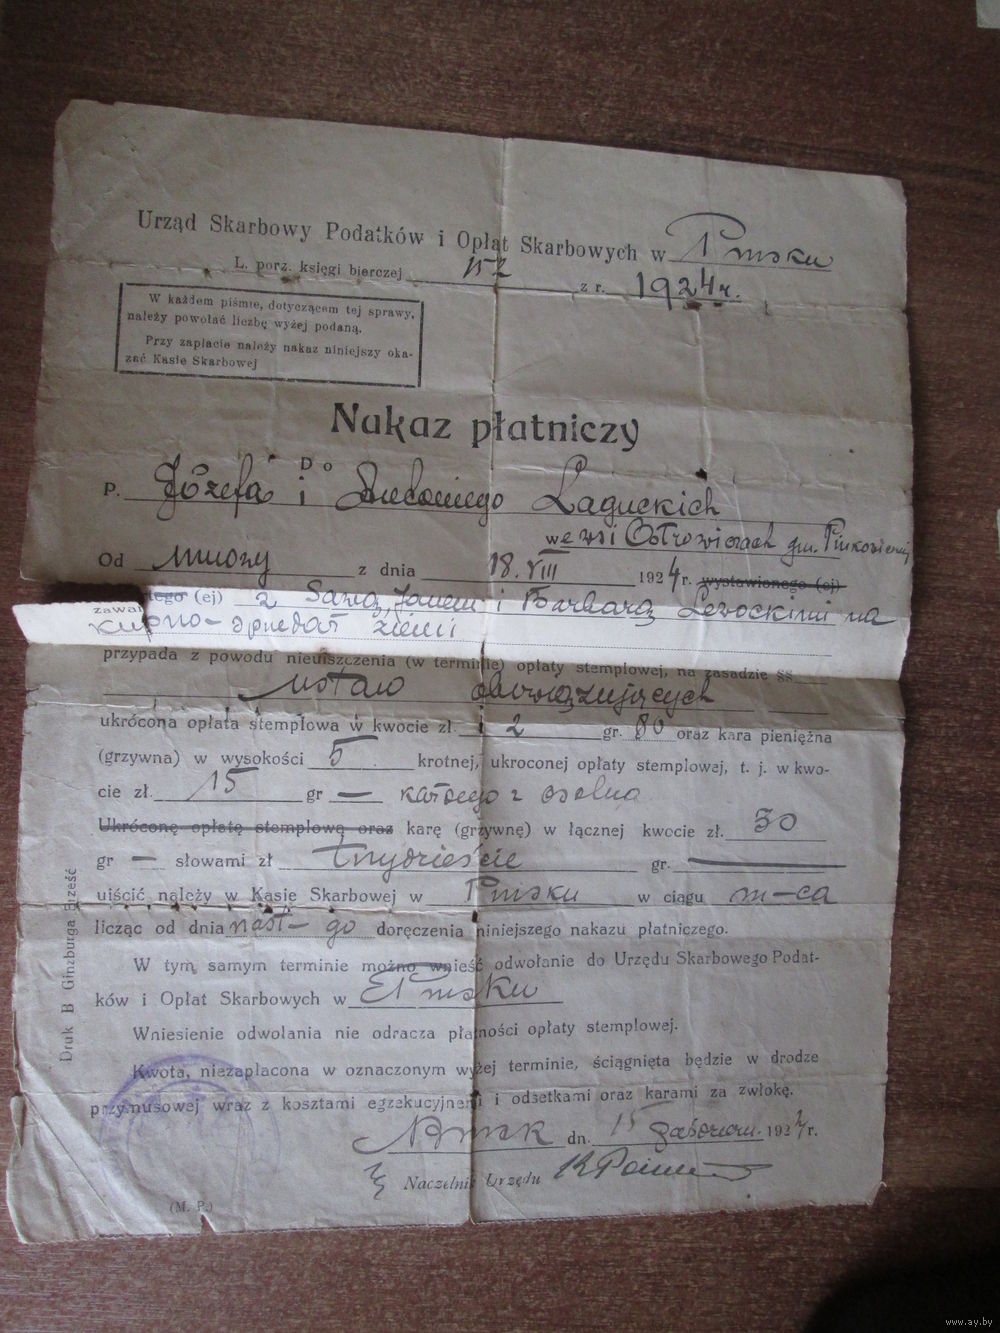 Urząd Skarbowy Podatków i Opłat Skarbowych w Pińsku
L. porz. księgi bierczej 152 z r. 1924 r.
W każdem piśmie, dotyczącem tej sprawy,
należy powołać liczbę wyżej podaną.
Przy zapłacie należy nakaz niniejszy oka-
zać Kasie Skarbowej
Nakaz płatniczy
Do
P. Józefa i Łaguckich
we wsi Ostrowiczach gm. Pinkowickiej
Od umowy z dnia 18.VIII 1924 r. wystawionego (ej)
zawartego (ej) z Sawą, Janem i Barbarą Lewockimi na
kupno-sprzedaż ziemi
przypada z powodu nieuiszczenia (w terminie) opłaty stemplowej, na zasadzie §§
ustaw obowiązujących
ukrócona opłata stemplowa w kwocie zł. 2 gr. 80 oraz kara pieniężna
(grzywna) w wysokości 5 krotnej, ukroconej opłaty stemplowej, t. j. w kwo-
cie zł. 15 gr — każdego z osobna
Ukróconę opłatę stemplową oraz karę (grzywnę) w łącznej kwocie zł. 30
gr — słowami zł trzydzieście gr.
uiścić należy w Kasie Skarbowej w Pińsku w ciągu m-ca
licząc od dnia nast-go doręczenia niniejszego nakazu płatniczego.
W tym samym terminie można wnieść odwołanie do Urzędu Skarbowego Podat-
ków i Opłat Skarbowych w Pińsku
Wniesienie odwołania nie odracza płatności opłaty stemplowej.
Kwota, niezapłacona w oznaczonym wyżej terminie, ściągnięta będzie w drodze
przymusowej wraz z kosztami egzekucyjnemi i odsetkami oraz karami za zwłokę.
Pińsk dn. 15 1924 r.
Naczelnik Urzędu
(M. P.)
Druk B Ginzburga Brześć
www.ay.by